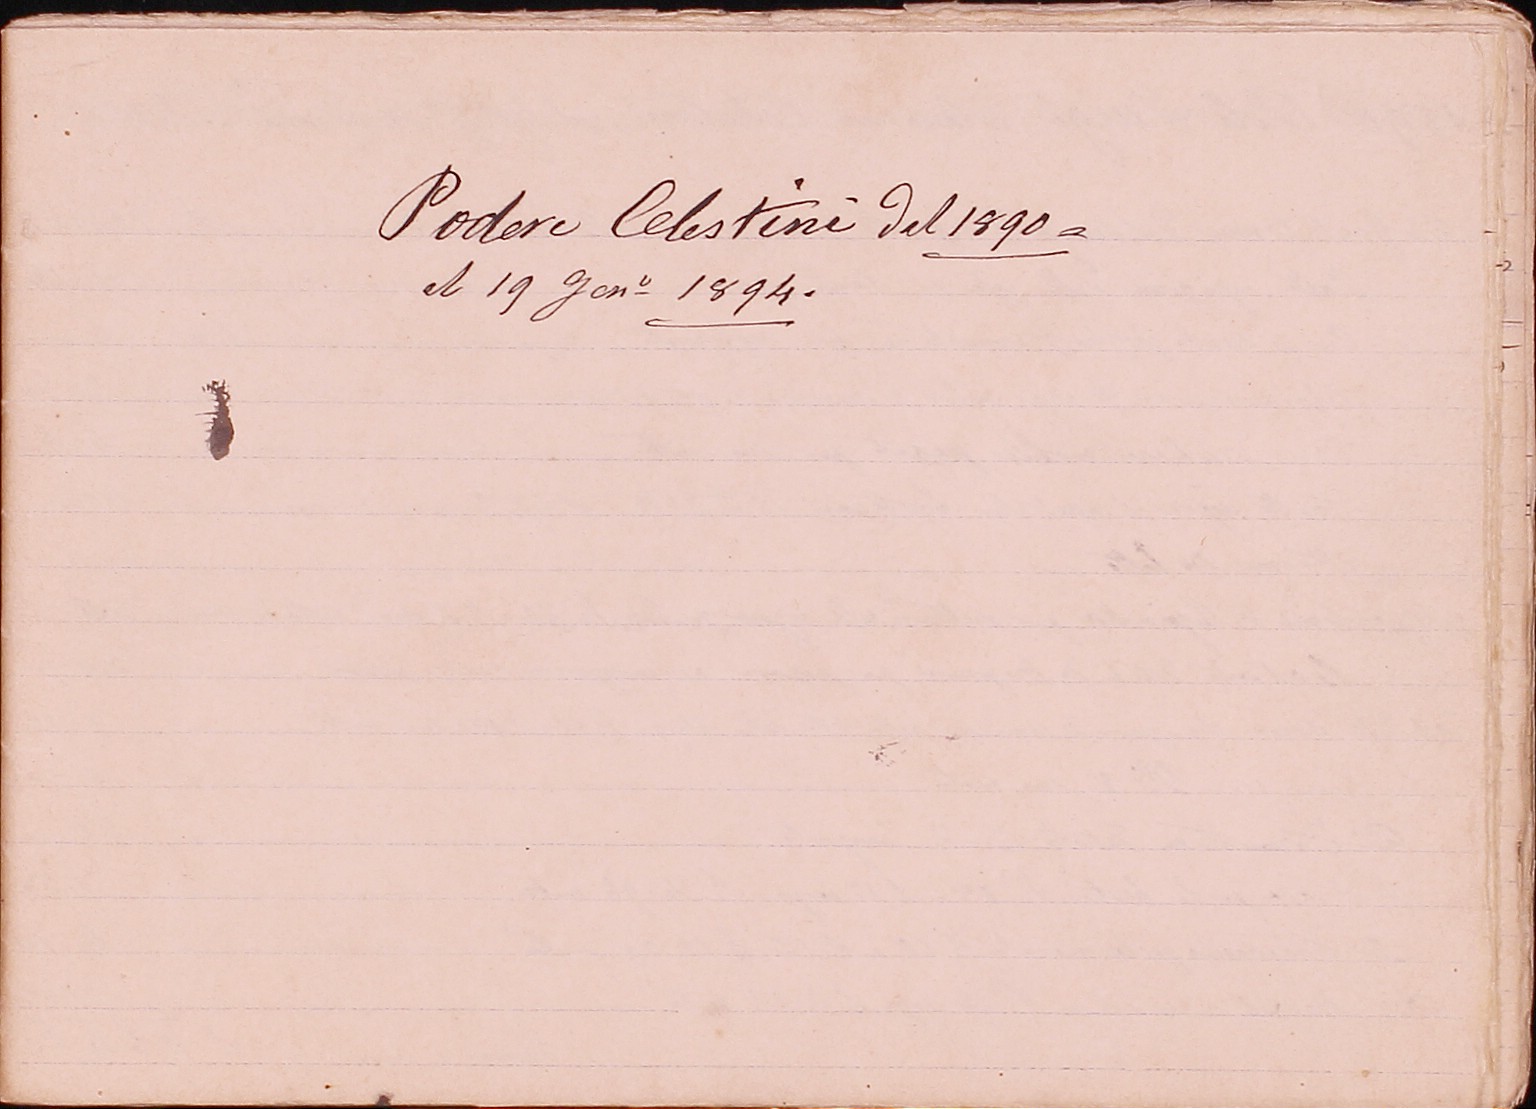 Podere Celestini del 1890 =
al 19 Genº 1894.